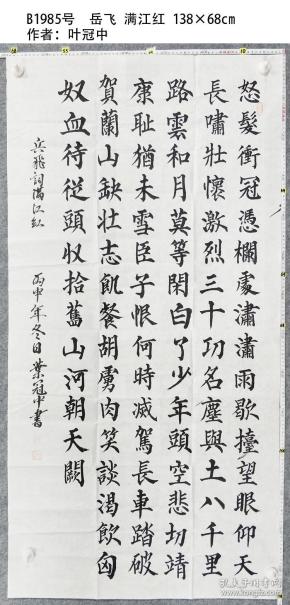 B1985号 岳飞 满江红 138×68cm
作者：叶冠中
怒髮衝冠憑欄處瀟瀟雨歇擡望眼仰天
長嘯壯懷激烈三十功名塵與土八千里
路雲和月莫等閑白了少年頭空悲切靖
康耻猶未雪臣子恨何時滅駕長車踏破
賀蘭山缺壮志飢餐胡虜肉笑談渴飲匈
奴血待從頭收拾舊山河朝天闕
岳飛詞滿江紅
丙申年冬日葉冠中書